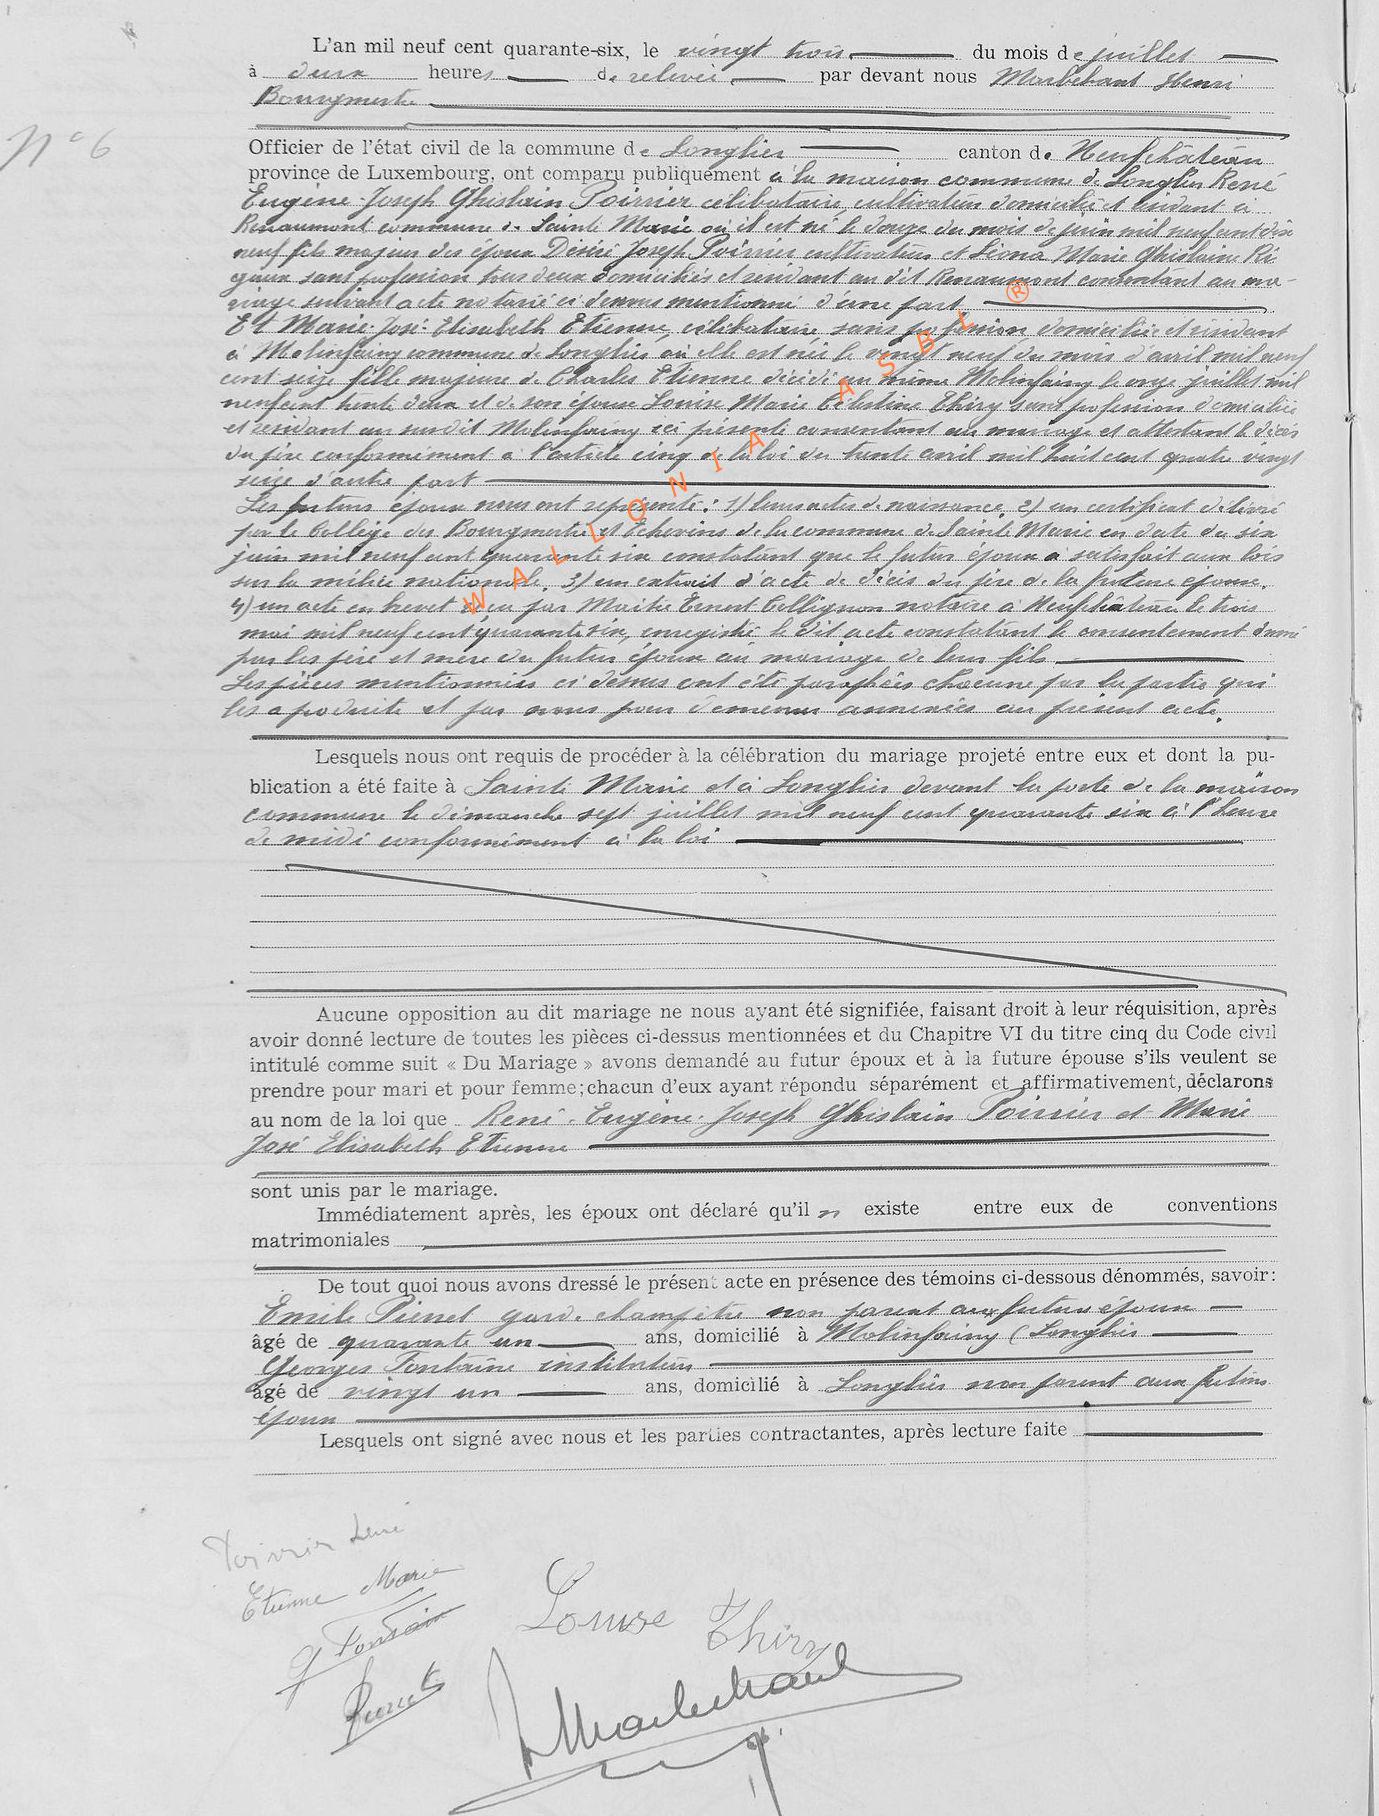 L'an mil neuf cent quarante-six, le vingt trois du mois de juillet
à deux heures de relevée par devant nous Marbehant Henri
Bourgmestre
N° 6
Officier de l'état civil de la commune de Longlier canton de Neufchâteau
province de Luxembourg, ont comparu publiquement à la maison commune de Longlier René
Eugène Joseph Ghislain Poirrier célibataire, cultivateur domicilié et résidant à
Renaumont commune de Sainte Marie où il est né le douze du mois de juin mil neuf cent dix
neuf fils majeur des époux Désiré Joseph Poirrier cultivateur et Léona Marie Ghislaine Ri
gaux sans profession tous deux domiciliés et résidant au dit Renaumont consentant au ma-
riage suivant acte notarié ci dessus mentionné d'une part
Et Marie José Elisabeth Etienne, célibataire, sans profession domiciliée et résidant
à Molinfaing commune de Longlier où elle est née le vingt neuf du mois d'avril mil neuf
cent seize fille majeure de Charles Etienne décédé au même Molinfaing le onze juillet mil
neuf cent trente deux et de son épouse Louise Marie Célestine Thiry sans profession domiciliée
et résidant au susdit Molinfaing ici présente consentant au mariage et attestant le décès
du père conformément à l'article cinq de la loi du trente avril mil huit cent quatre vingt
seize d'autre part
Les futurs époux nous ont représenté : 1) leurs actes de naissance. 2) un certificat délivré
par le Collège des Bourgmestre et Echevins de la commune de Sainte Marie en date du six
juin mil neuf cent quarante six constatant que le futur époux a satisfait aux lois
sur la milice nationale. 3) un extrait d'acte de décès du père de la future épouse.
4) un acte en brevet reçu par Maître Ernest Collignon notaire à Neufchâteau le trois
mai mil neuf cent quarante six, enregistré le dit acte constatant le consentement donné
par les père et mère du futur époux au mariage de leur fils
Les pièces mentionnées ci dessus ont été paraphées chacune par la partie qui
les a produite et par nous pour demeurer annexées au présent acte.
WALLONIA ASBL ®
Lesquels nous ont requis de procéder à la célébration du mariage projeté entre eux et dont la pu-
blication a été faite à Sainte Marie et à Longlier devant la porte de la maison
commune le dimanche sept juillet mil neuf cent quarante six à l'heure
de midi conformément à la loi
Aucune opposition au dit mariage ne nous ayant été signifiée, faisant droit à leur réquisition, après
avoir donné lecture de toutes les pièces ci-dessus mentionnées et du Chapitre VI du titre cinq du Code civil
intitulé comme suit « Du Mariage » avons demandé au futur époux et à la future épouse s'ils veulent se
prendre pour mari et pour femme; chacun d'eux ayant répondu séparément et affirmativement, déclarons
au nom de la loi que René Eugène Joseph Ghislain Poirrier et Marie
José Elisabeth Etienne
sont unis par le mariage.
Immédiatement après, les époux ont déclaré qu'il n existe entre eux de conventions
matrimoniales
De tout quoi nous avons dressé le présent acte en présence des témoins ci-dessous dénommés, savoir:
Emile Pierret garde champêtre non parent aux futurs époux
âgé de quarante un ans, domicilié à Molinfaing (Longlier
Georges Fontaine instituteur
âgé de vingt un ans, domicilié à Longlier non parent aux futurs
époux
Lesquels ont signé avec nous et les parties contractantes, après lecture faite
Poirrier René
Etienne Marie
G Fontaine
Louise Thiry
Pierret
H Marbehant